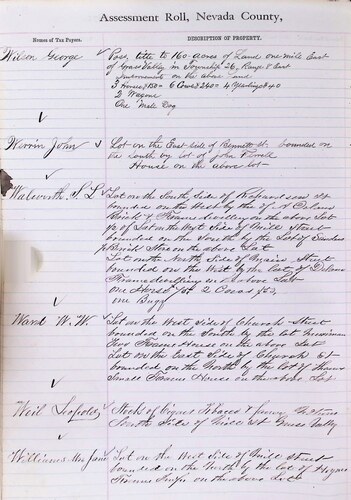 Assessment Roll, Nevada County,
Names of Tax Payers.
DESCRIPTION OF PROPERTY.
Wilson George
Poss title to 160 acres of Land one mile East
of Grass Valley in Township 26, Range 8 East
Improvements on the above Land
3 Horses $150 = 6 Cows $240 = 4 Yearlings $40
2 Wagons
One Male Dog
Werrin John
Lot on the East side of Bennett St. bounded on
the South by lot of John
House on the above Lot
Walworth
Lot on the South side of Street
bounded on the West by the lot of Delano
Brick & Frame dwelling on the above Lot
1/2 of Lot on the West Side of Mill Street
bounded on the South by the Lot of Sanders
Brick Store on the above Lot
Lot on the North Side of Main Street
bounded on the West by the lot of Delano
Frame dwelling on above Lot
One Horse 2 Cows
one Buggy
Ward W. W.
Lot on the West side of Church Street
bounded on the South by the lot
Two Frame House on the above Lot
Lot on the East Side of Church St
bounded on the North by the lot of
Small Frame House on the above Lot
Weil Leopold
Stock of Cigars Tobacco &
South Side of Mill St Grass Valley
Williams Mrs Jane
Lot on the West Side of Mill Street
bounded on the North by the lot of
on the above Lot